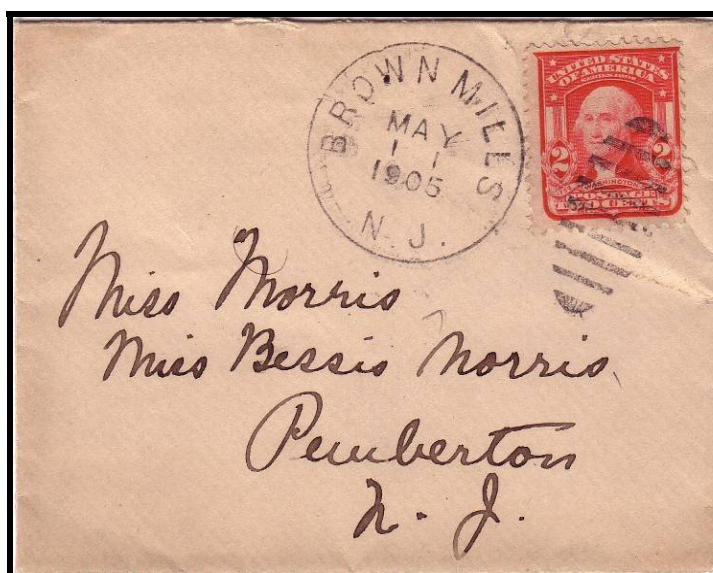 BROWN MILLS
MAY
1 1
1905
N. J.
UNITED STATES
OF AMERICA
SERIES 1902
2 2
WASHINGTON
TWO CENTS
Miss Morris
Miss Bessie Morris
Pemberton
N. J.